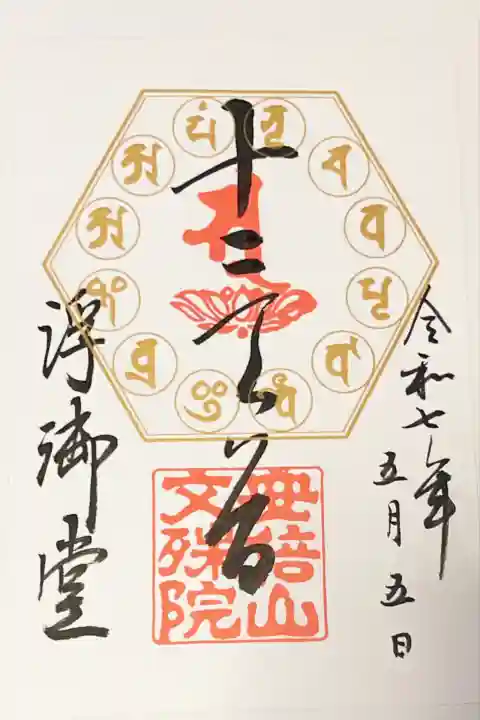 令和七年
五月五日
十二天尊
安倍山
文殊院
浮御堂